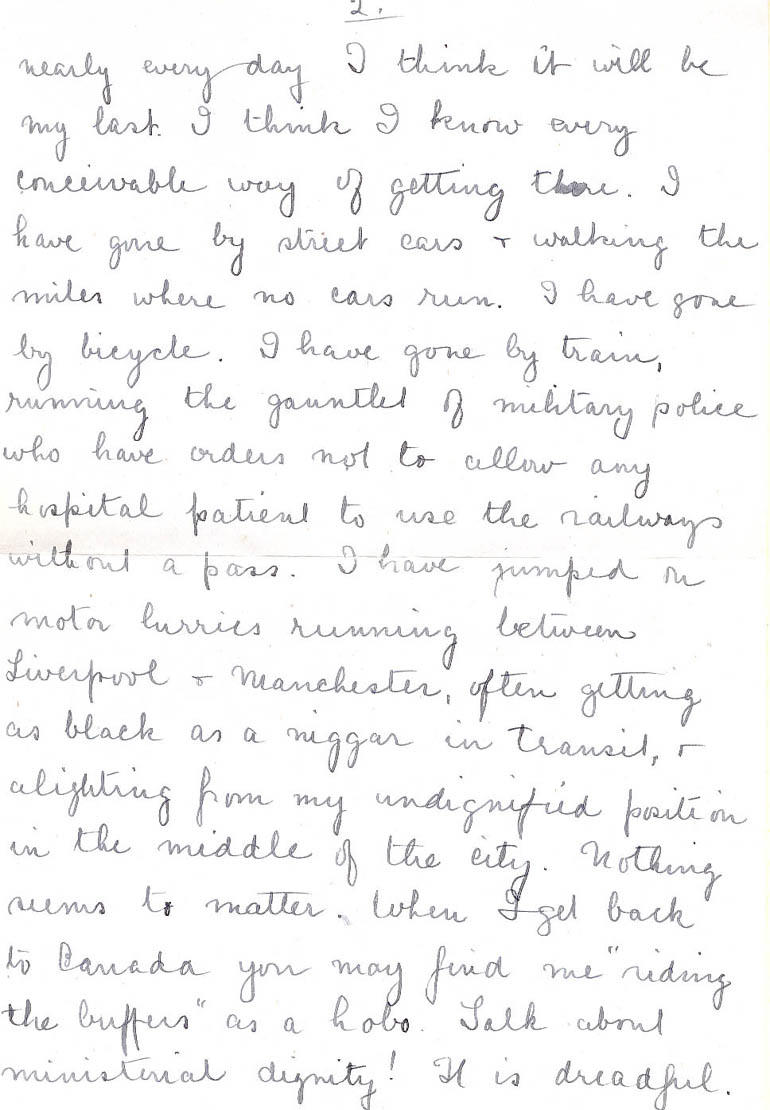 2.
nearly every day I think it will be
my last. I think I know every
conceivable way of getting there. I
have gone by street cars & walking the
miles where no cars run. I have gone
by bicycle. I have gone by train,
running the gauntlet of military police
who have orders not to allow any
hospital patient to use the railways
without a pass. I have jumped on
motor lurries running between
Liverpool & Manchester, often getting
as black as a niggar in transit, &
alighting from my undignified position
in the middle of the city. Nothing
seems to matter. When I get back
to Canada you may find me "riding
the buffers" as a hobo. Talk about
ministerial dignity! It is dreadful.